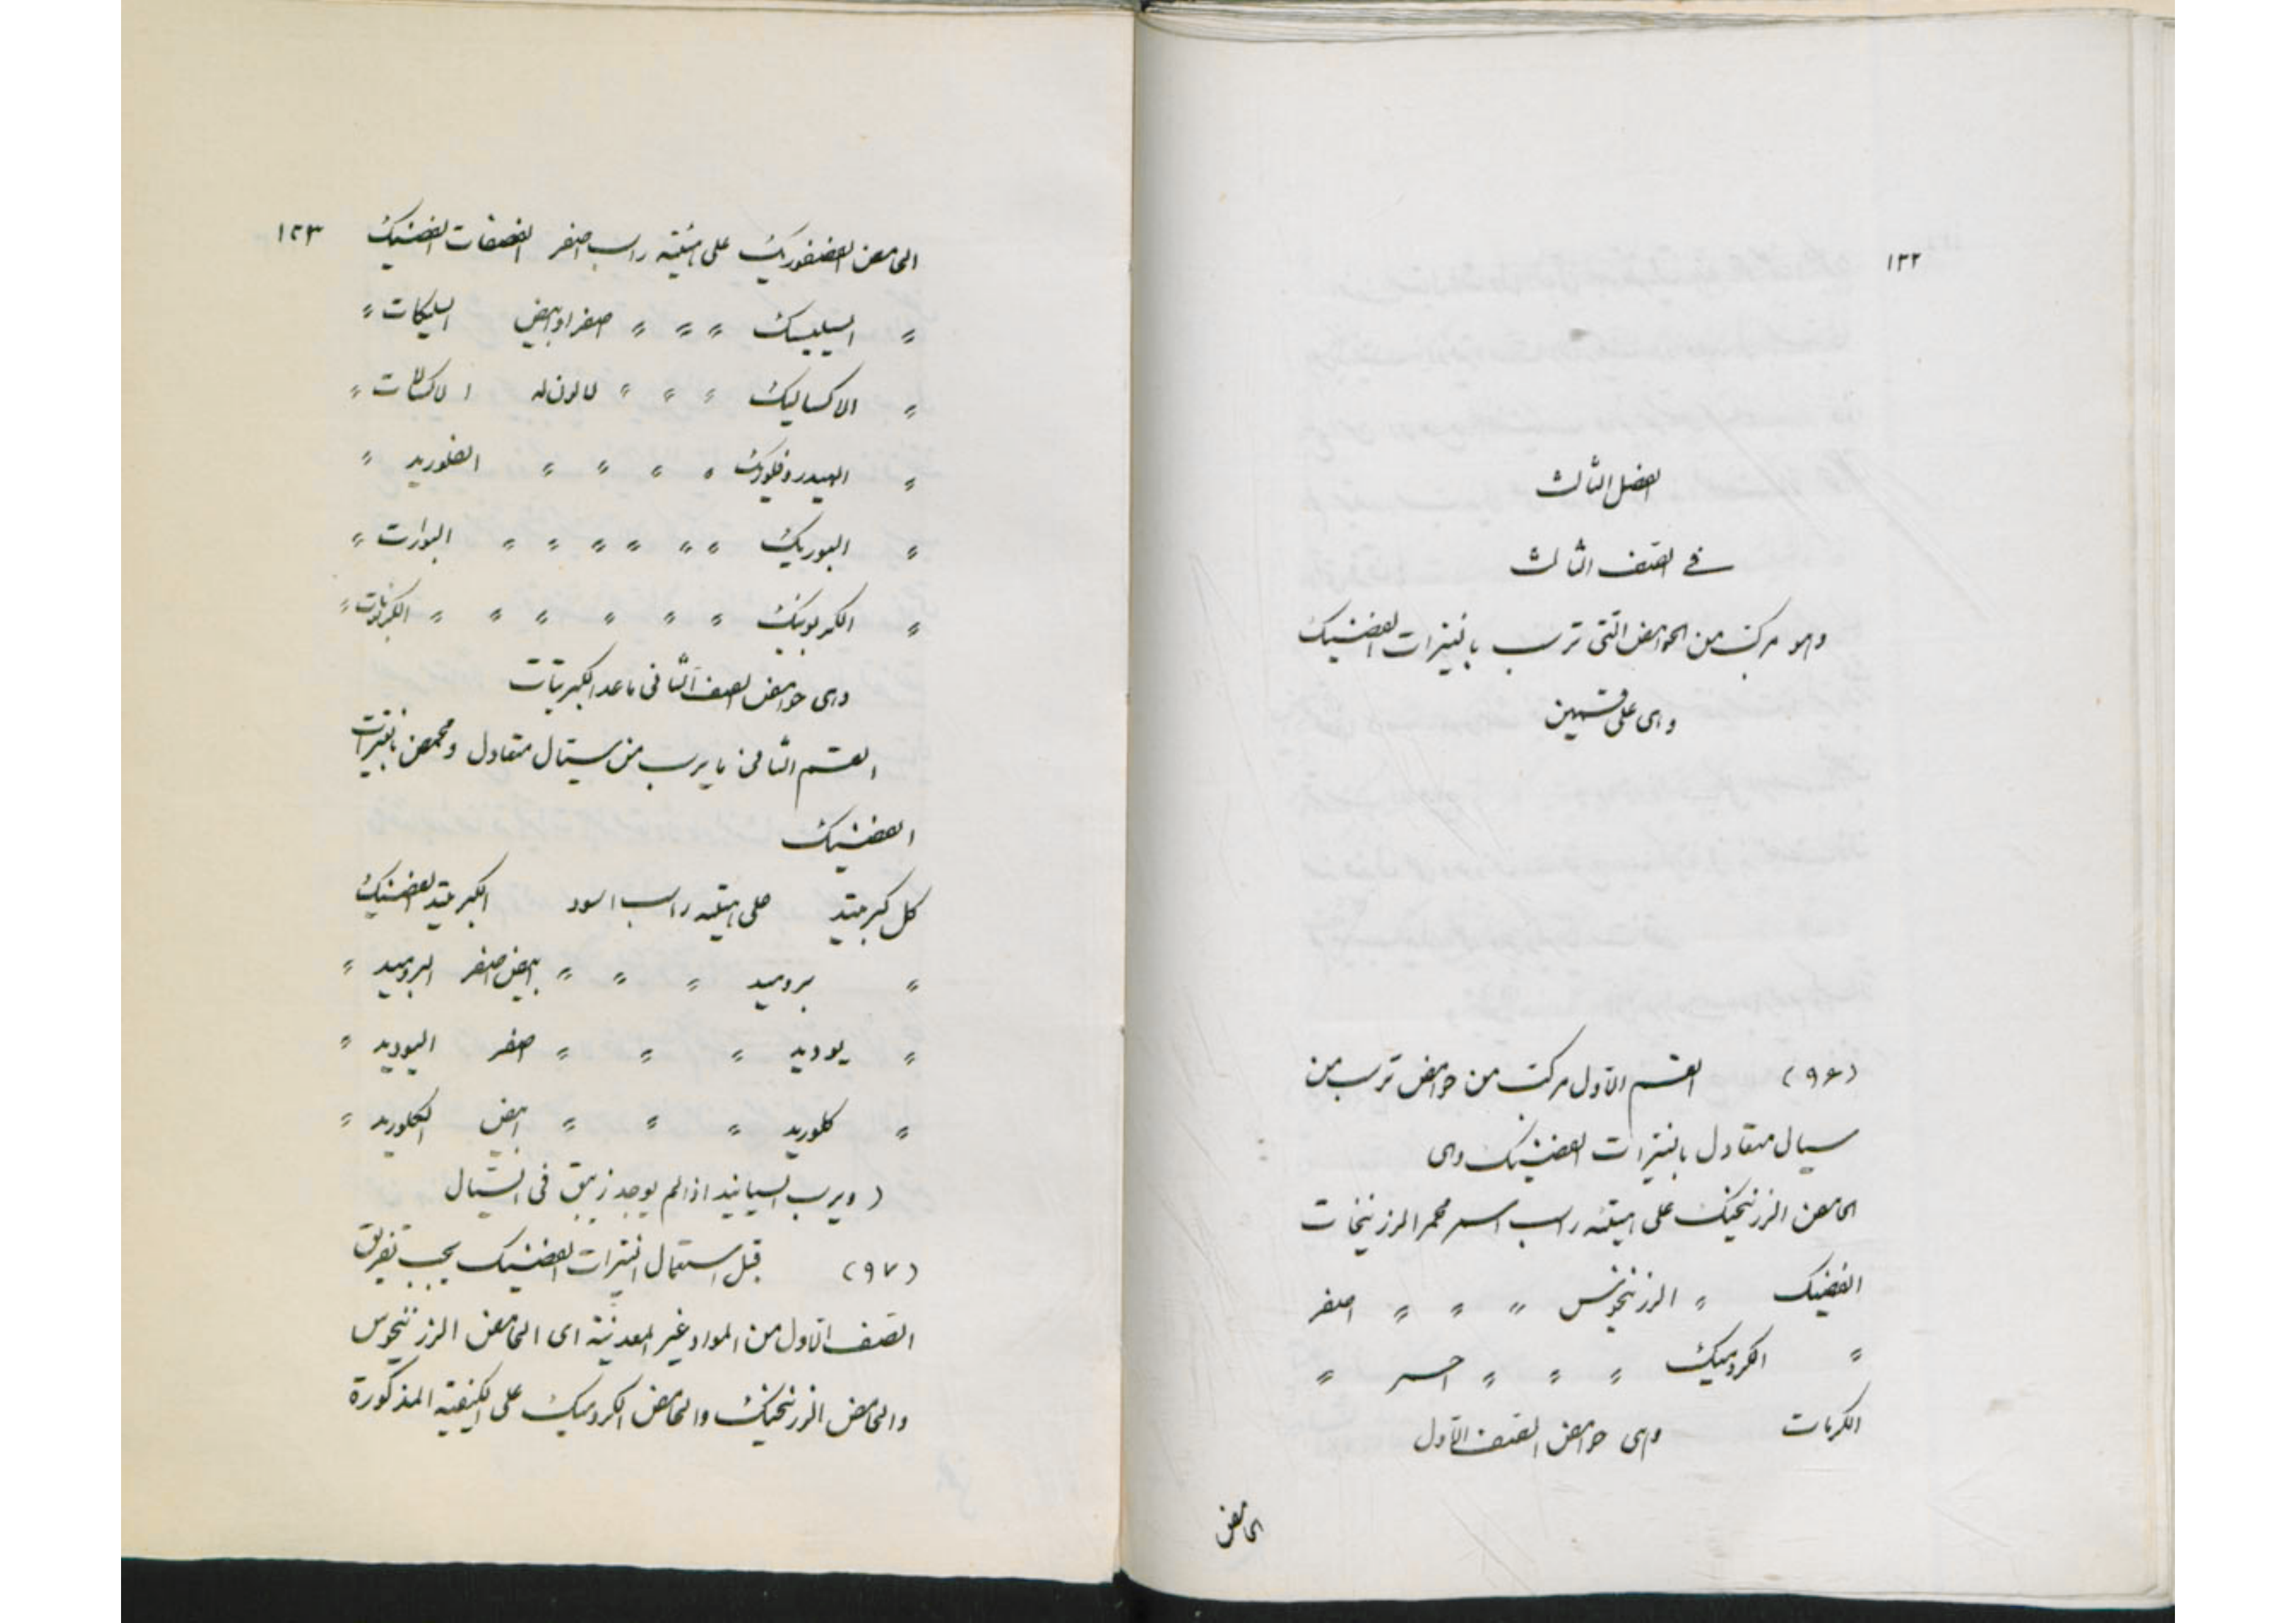 ١٣٢
الفصل الثالث
في الصنف الثالث
وهو مركب من الحوامض التي ترسب بالنيترات الفضيك
وهي على قسمين
(٩٦) القسم الاول مركب من حوامض ترسب من
سيال متعادل بالنيترات الفضيك وهي
الحامض الزرنيخيك على هيئته راسب اسمر محمر الزرنيخات
الفضيك " الزرنيخوس " " " " اصفر
" الكروميك " " " " احمر "
الكرمات وهي حوامض الصنف الاول
الحامض
١٣٣
الحامض الفصفوريك على هيئته راسب اصفر الفصفات الفضيك
" السيليسيك " " " اصفر او ابيض السليكات "
" الاكساليك " " " لا لون له الاكسالات "
" الهيدروفلوريك " " " " الفلوريد "
" البوريك " " " " " " البورات "
" الكربونيك " " " " " " الكربونات "
وهي حوامض الصنف الثاني ما عدا الكبريتات
القسم الثاني ما يرسب من سيال متعادل ومحمض بالنيترات
الفضيك
كل كبريتيد على هيئته راسب اسود الكبريتيد الفضيك
" بروميد " " " ابيض اصفر البروميد "
" يوديد " " " اصفر اليوديد "
" كلوريد " " " ابيض الكلوريد "
(ويرسب السيانيد اذا لم يوجد زيبق في السيال
(٩٧) قبل استعمال النيترات الفضيك يجب تفريق
الصنف الاول من المواد غير المعدنية اي الحامض الزرنيخوس
والحامض الزرنيخيك والحامض الكروميك على الكيفية المذكورة